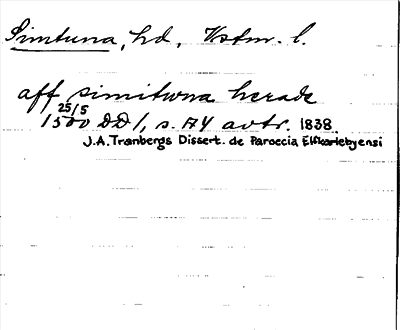 Simtuna, hd, Vstm. l.
aff simitwna herade
25/5
1500 DD 1, s. 74 avtr. 1838
J.A. Tranbergs Dissert. de Paroecia Elfkarlebyensi